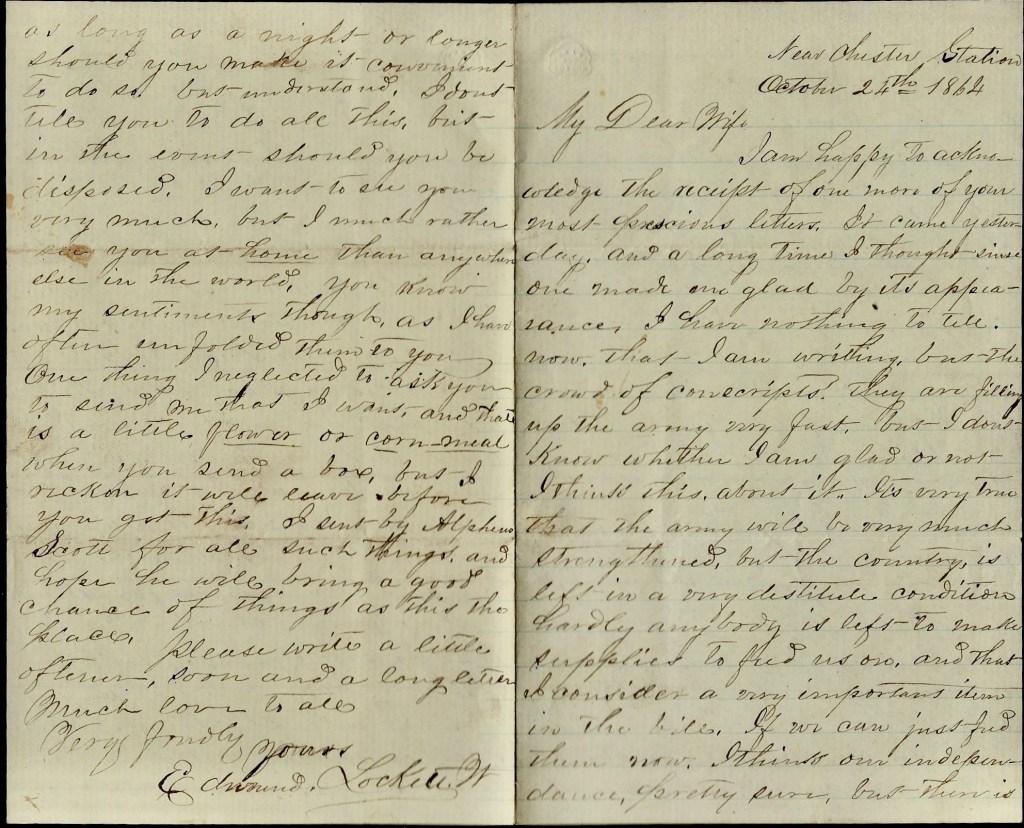 Near Chester Station
October 24th 1864
My Dear Wife
I am happy to ackno-
wledge the receipt of one more of your
most prescious letters. It came yester-
day. and a long time I thought since
one made me glad by its appea-
rance, I have nothing to tell.
now. that I am writing, but the
crowd of conscripts. they are filling
up the army very fast, but I dont
know whether I am glad or not
I think this. about it. Its very true
that the army will be very much
strengthened, but the country, is
left in a very destitute condition
hardly anybody is left to make
supplies to feed us on, and that
I consider a very important item
in the bill. If we can just feed
them now. I think our indepen-
dance, pretty sure, but there is
as long as a night or longer
should you make it convenient
to do so. but understand, I dont
tell you to do all this, but
in the event should you be
disposed. I want to see you
very much, but I much rather
see you at home than anywhere
else in the world, you know
my sentiments though, as I have
often unfolded them to you
One thing I neglected to ask you
to send me that I want, and that
is a little flower or corn-meal
when you send a box, but I
reckon it will leave before
you get this. I sent by Alpheus
Scott for all such things, and
hope he will bring a good
chance of things as this the
place, please write a little
oftener, soon and a long letter
Much love to all
Very fondly yours
Edmund. Lockett